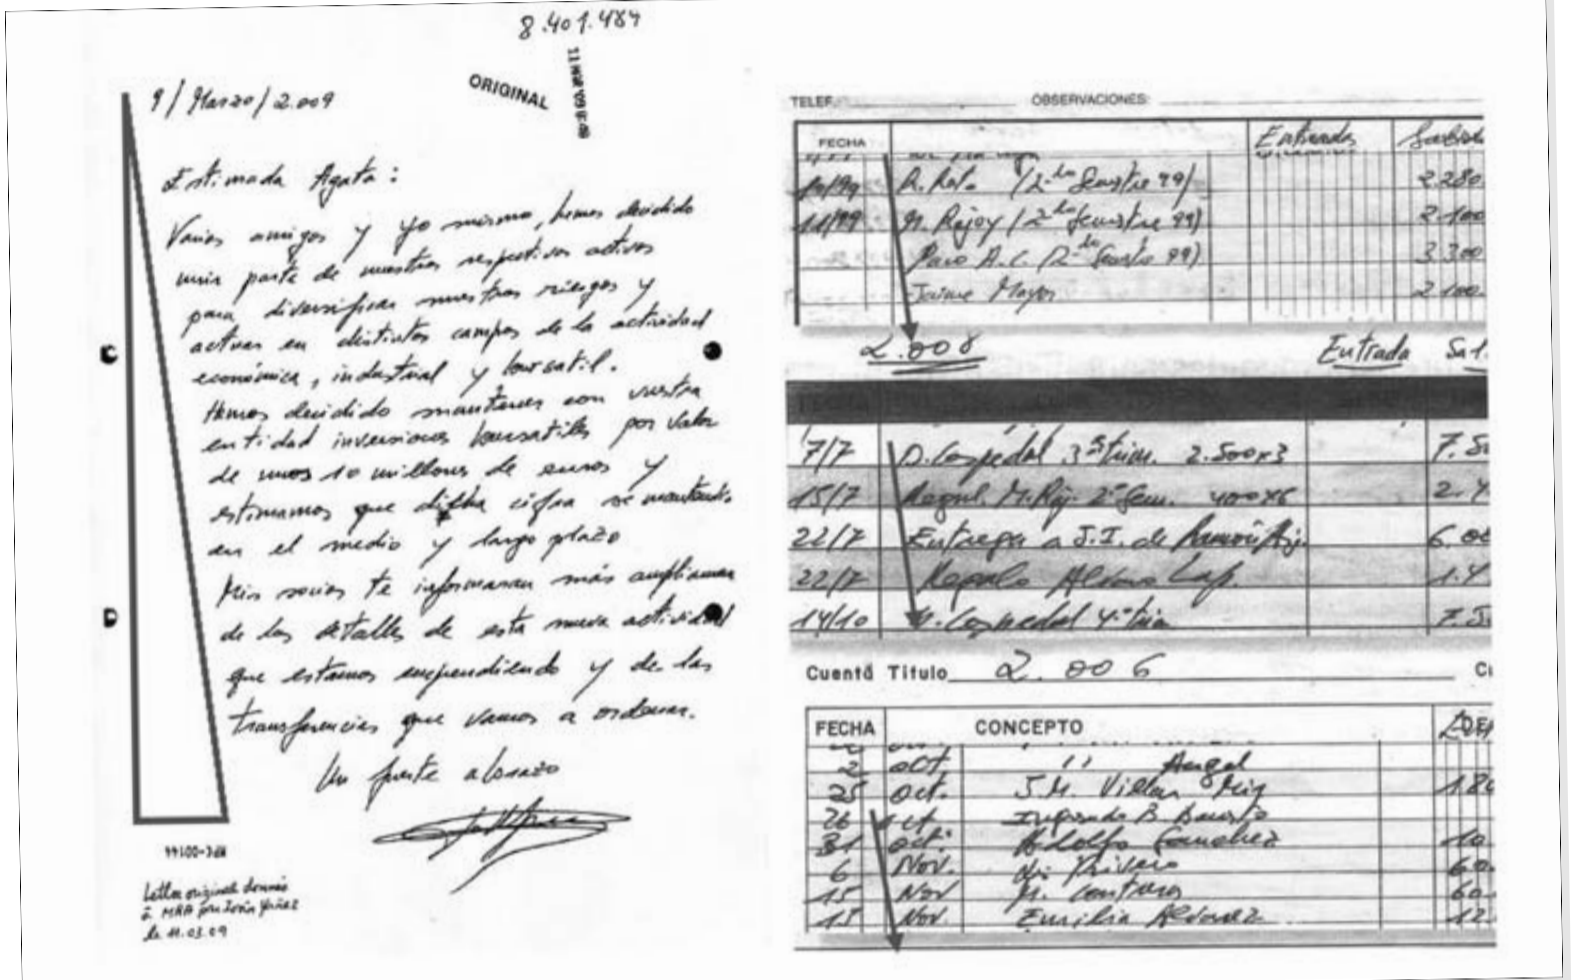 8.401.484
ORIGINAL
9/Marzo/2.009
Estimada Agata:
Varios amigos y yo mismo, hemos decidido
unir parte de nuestros respectivos activos
para diversificar nuestros riesgos y
activar en distintos campos de la actividad
económica, industrial y bursatil.
Hemos decidido mantener con vuestra
entidad inversiones bursatiles por valor
de unos 10 millones de euros y
estimamos que dicha cifra se mantendrá
en el medio y largo plazo
Mis socios te informaran más ampliamen
de los detalles de esta nueva actividad
que estamos emprendiendo y de las
transferencias que vamos a ordenar.
Un fuerte abrazo
Lettre originale donnée
à MRA par
le 11.03.09
TELEF. OBSERVACIONES:
FECHA Entradas
10/99 R. Rato (2º Semestre 99) 2.280
11/99 M. Rajoy (2º Semestre 99) 2.100
Paco A.C. (2º Semestre 99) 3.300
Jaime Mayor 2.100
2.008 Entrada Sal.
7/7 D. Cospedal 3º trim. 2.500x3 7.5
15/7 Regul. M. Raj. 2º Sem. 400x6 2.4
22/7 Entrega a J.I. de 6.00
22/7 Regalo Alvaro Lap. 1.4
14/10 Cospedal 4º trim 7.5
Cuenta Título 2.006
FECHA CONCEPTO
2 oct. " Angel
25 oct. J.M. Villar Mir 1.80
26 oct. Ingresado B.
31 oct. Adolfo Sanchez 10
6 Nov. 60
15 Nov M. Contreras 60
15 Nov. Emilio Alvarez 12